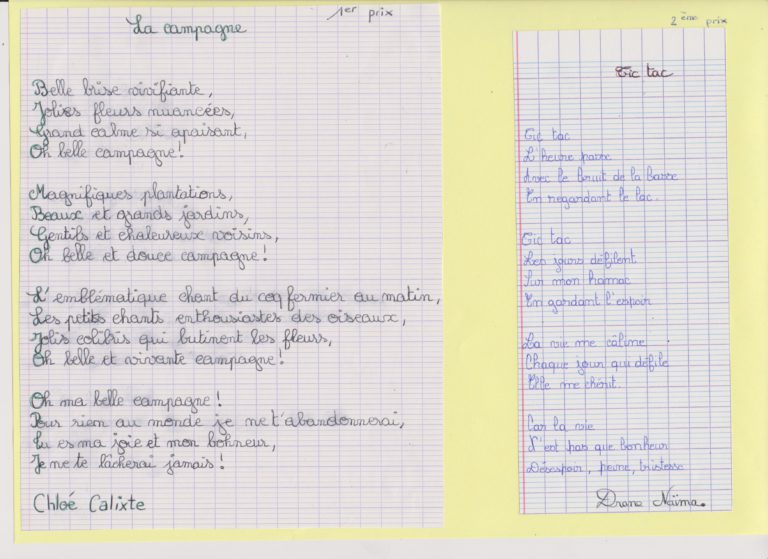 1er prix
La campagne
Belle brise vivifiante,
Jolies fleurs nuancées,
Grand calme si apaisant,
Oh belle campagne!
Magnifiques plantations,
Beaux et grands jardins,
Gentils et chaleureux voisins,
Oh belle et douce campagne!
L'emblématique chant du coq fermier au matin,
Les petits chants enthousiastes des oiseaux,
Jolis colibris qui butinent les fleurs,
Oh belle et vivante campagne!
Oh ma belle campagne!
Pour rien au monde je ne t'abandonnerai,
Tu es ma joie et mon bonheur,
Je ne te lâcherai jamais!
Chloé Calixte
2ème prix
Tic tac
Tic tac
L'heure passe
Avec le bruit de la basse
En regardant le lac.
Tic tac
Les jours défilent
Sur mon hamac
En gardant l'espoir
La vie me câline
Chaque jour qui défile
Elle me chérit.
Car la vie
N'est pas que bonheur
Désespoir, peine, tristesse
Drane Naïma.